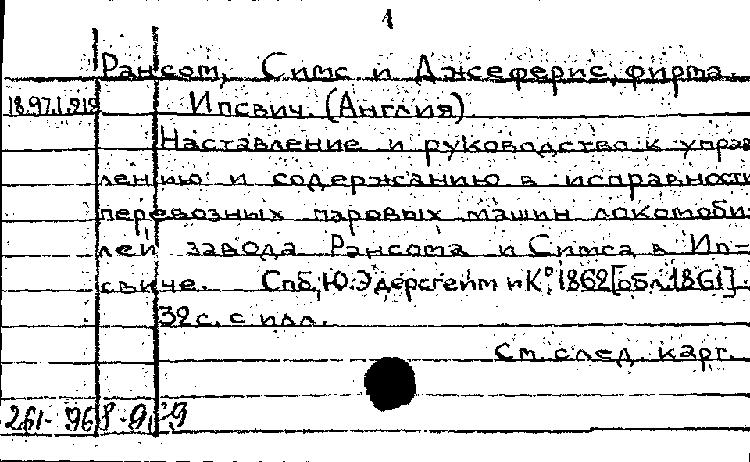 1
Рансом, Симс и Джеферис, фирма.
18.97.1.919 Ипсвич. (Англия)
Наставление и руководство к управ
лению и содержанию в исправности
перевозных паровых машин локомоби
лей завода Рансома и Симса в Ип=
свиче. Спб, Ю. Эдерсгейм и К°, 1862 [обл. 1861].
32 с. с илл.
См. след. карт.